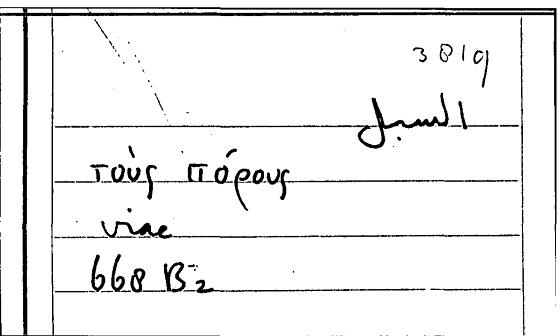 3819
السبل
τοὺς πόρους
viae
668 B2